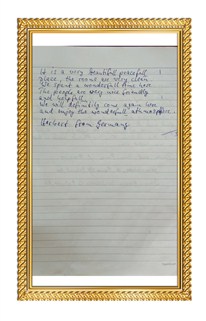 It is a very beautiful peacefull
place, the rooms are very clean.
We spent a wonderfull time here
The people are very nice friendly
and helpfull.
We will definitely come again here
and enjoy the wonderfull atmosphere
Herbert from Germany